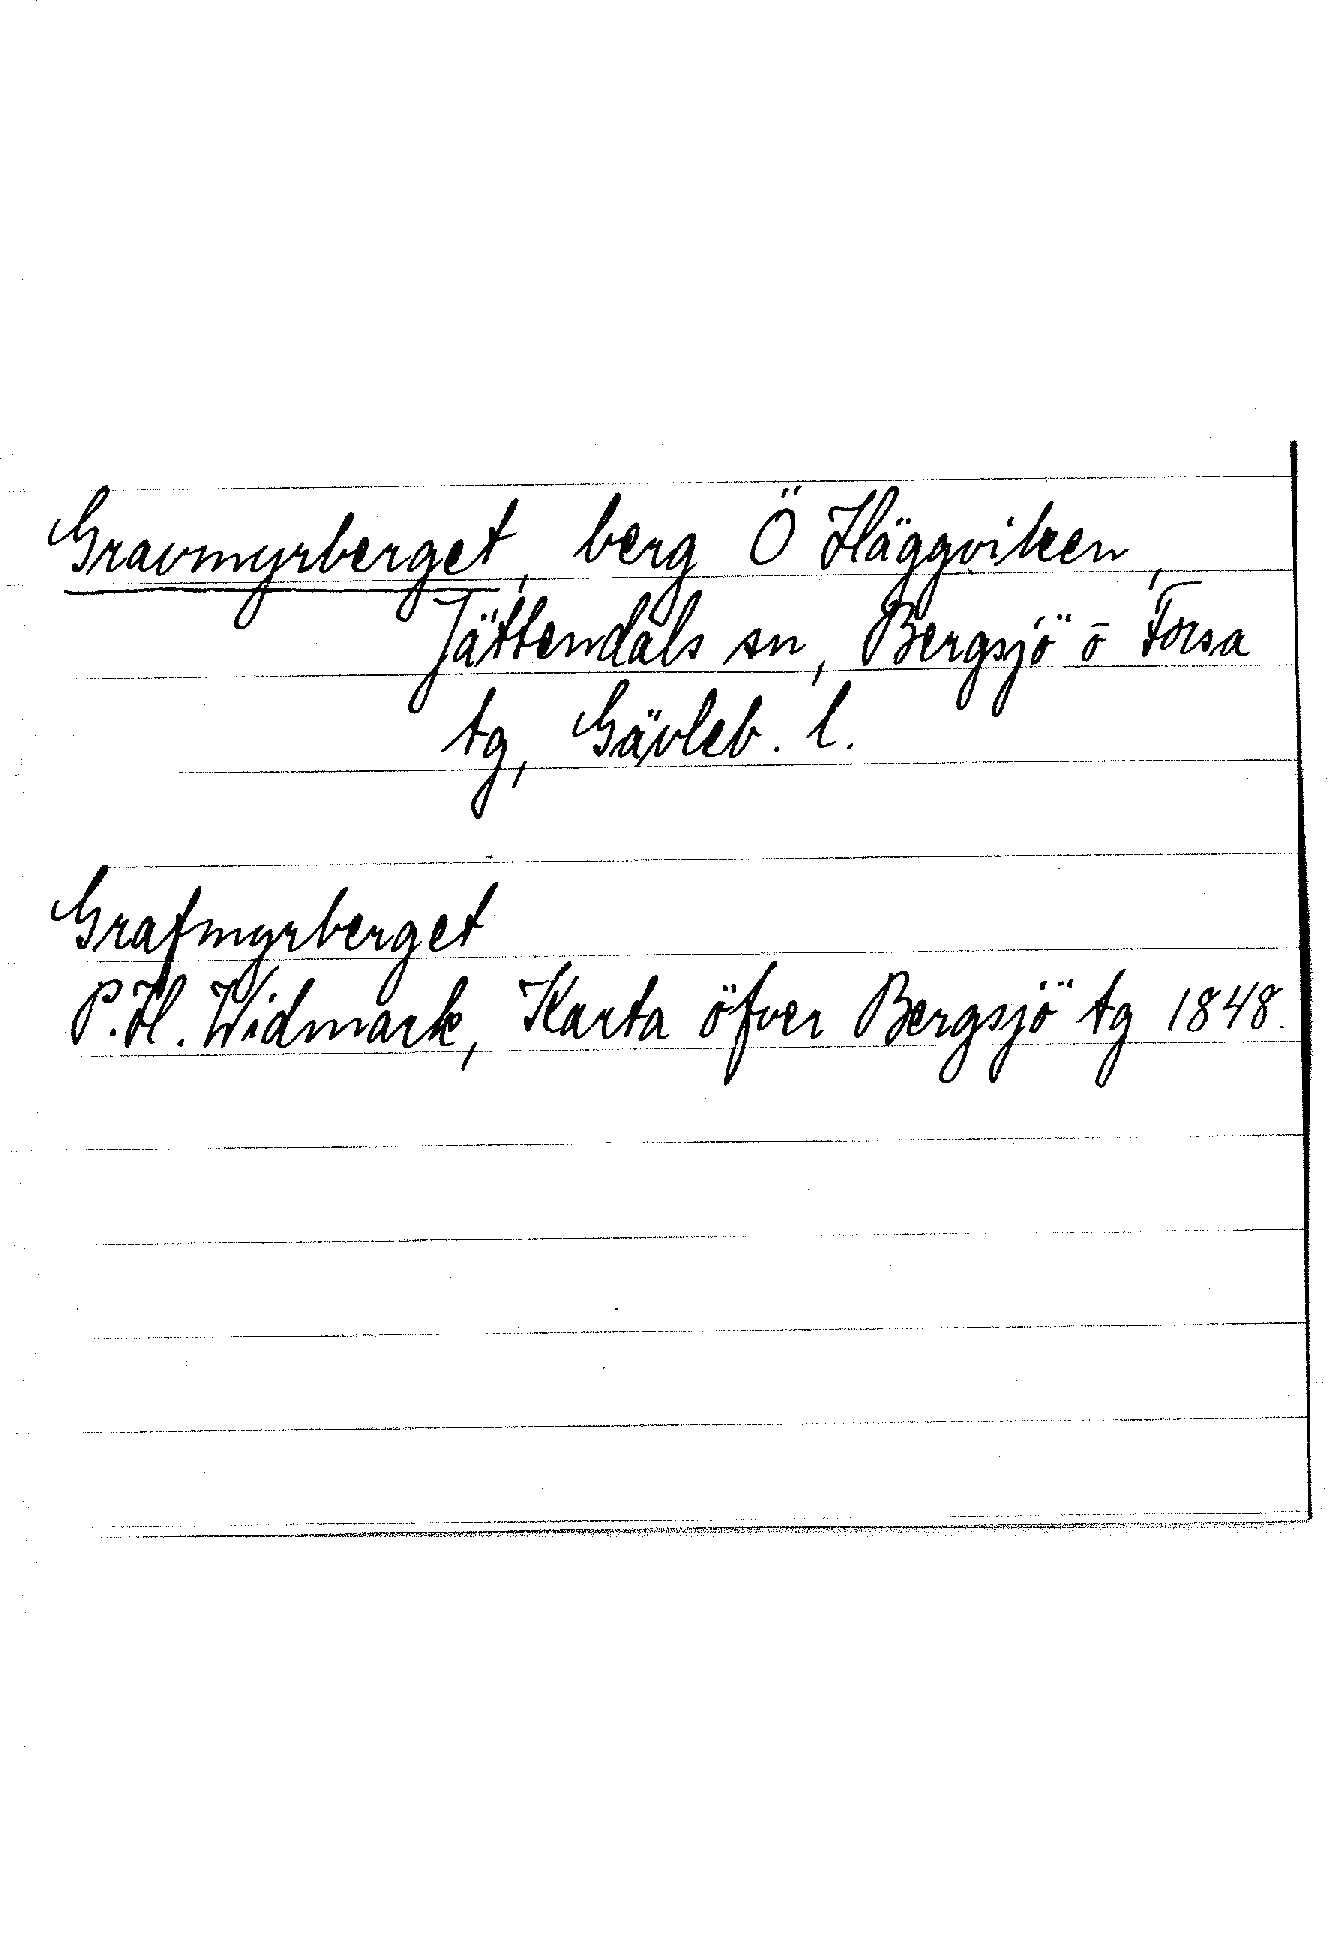 Gravmyrberget, berg Ö Häggviken,
Jättendals sn, Bergsjö o Forsa
tg, Gävleb. l.
Grafmyrberget
P. H. Widmark, Karta öfver Bergsjö tg 1848.